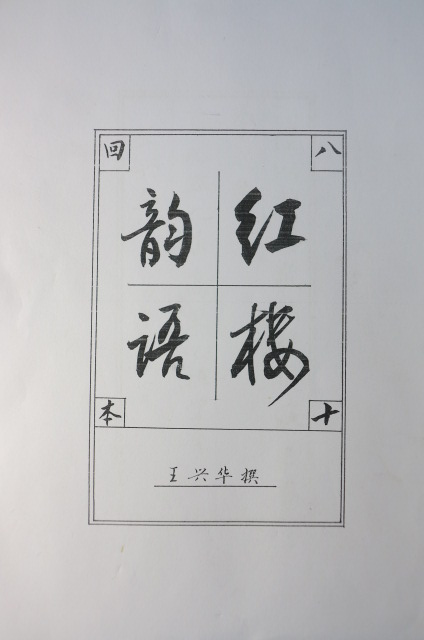 红楼
韵语
八十
回本
王兴华撰